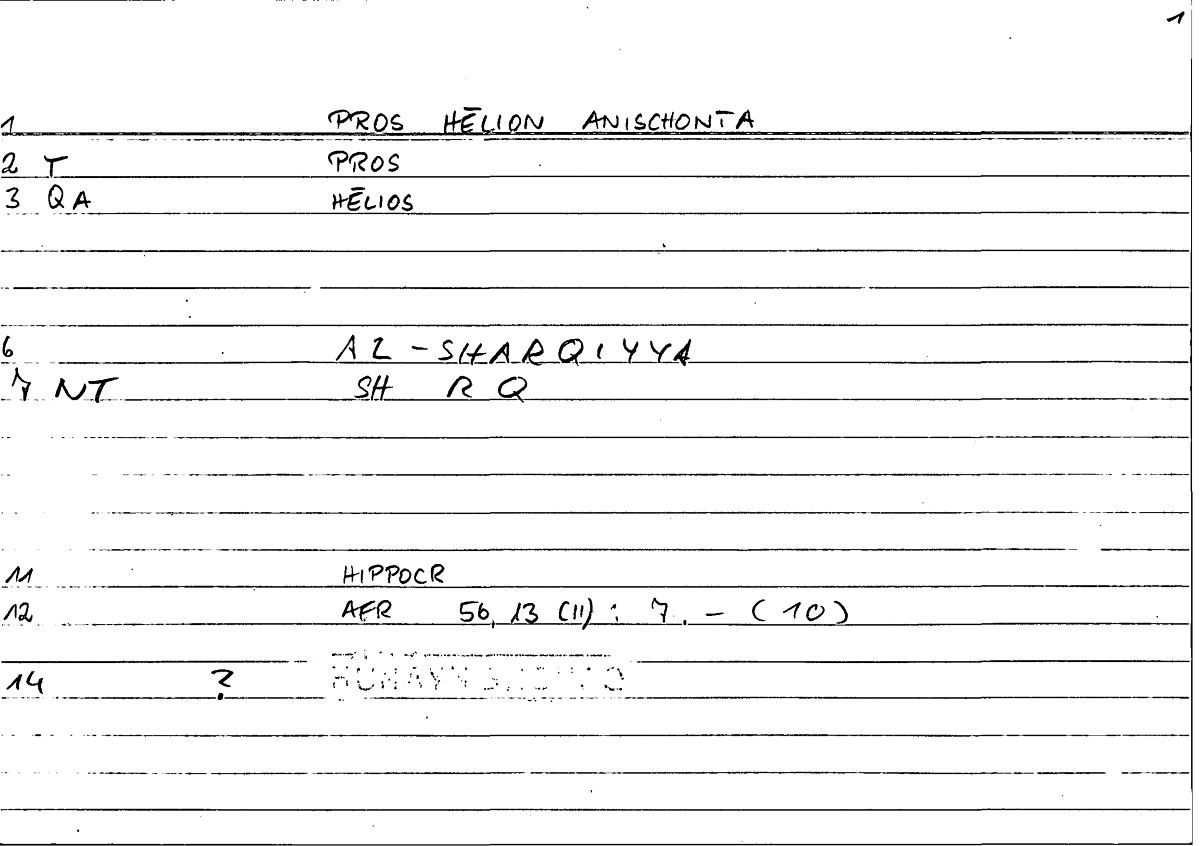 1
1 PROS HĒLION ANISCHONTA
2 T PROS
3 QA HĒLIOS
6 AL-SHARQIYYA
7 NT SH R Q
11 HIPPOCR
12 AER 56,13 (11) : 7. - (10)
14 ?